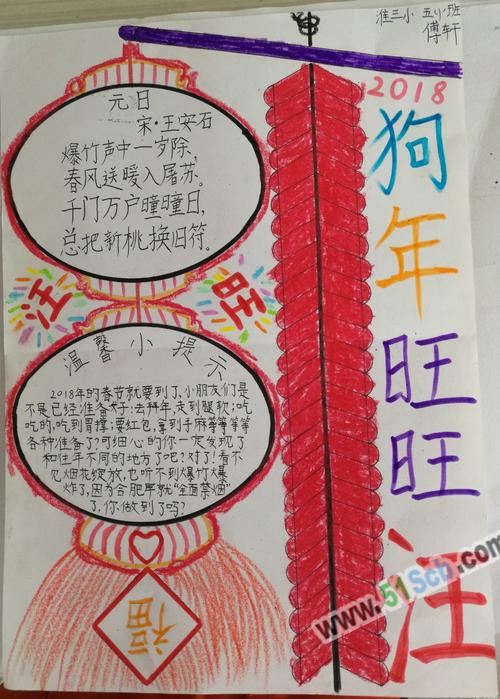 淮三小 五(小)班
傅轩
2018
狗年旺旺汪
元日
宋·王安石
爆竹声中一岁除,
春风送暖入屠苏。
千门万户曈曈日,
总把新桃换旧符。
汪
旺
温馨小提示
2018年的春节就要到了,小朋友们是
不是已经准备好:去拜年,走到腿软;吃
吃的,吃到胃撑;要红包,拿到手麻等等等等
各种准备了?可细心的你一定发现了
和往年不同的地方了吧?对了!看不
见烟花绽放,也听不到爆竹大爆
炸了,因为合肥早就"全面禁烟"
了,你做到了吗?
福
www.51Scb.com